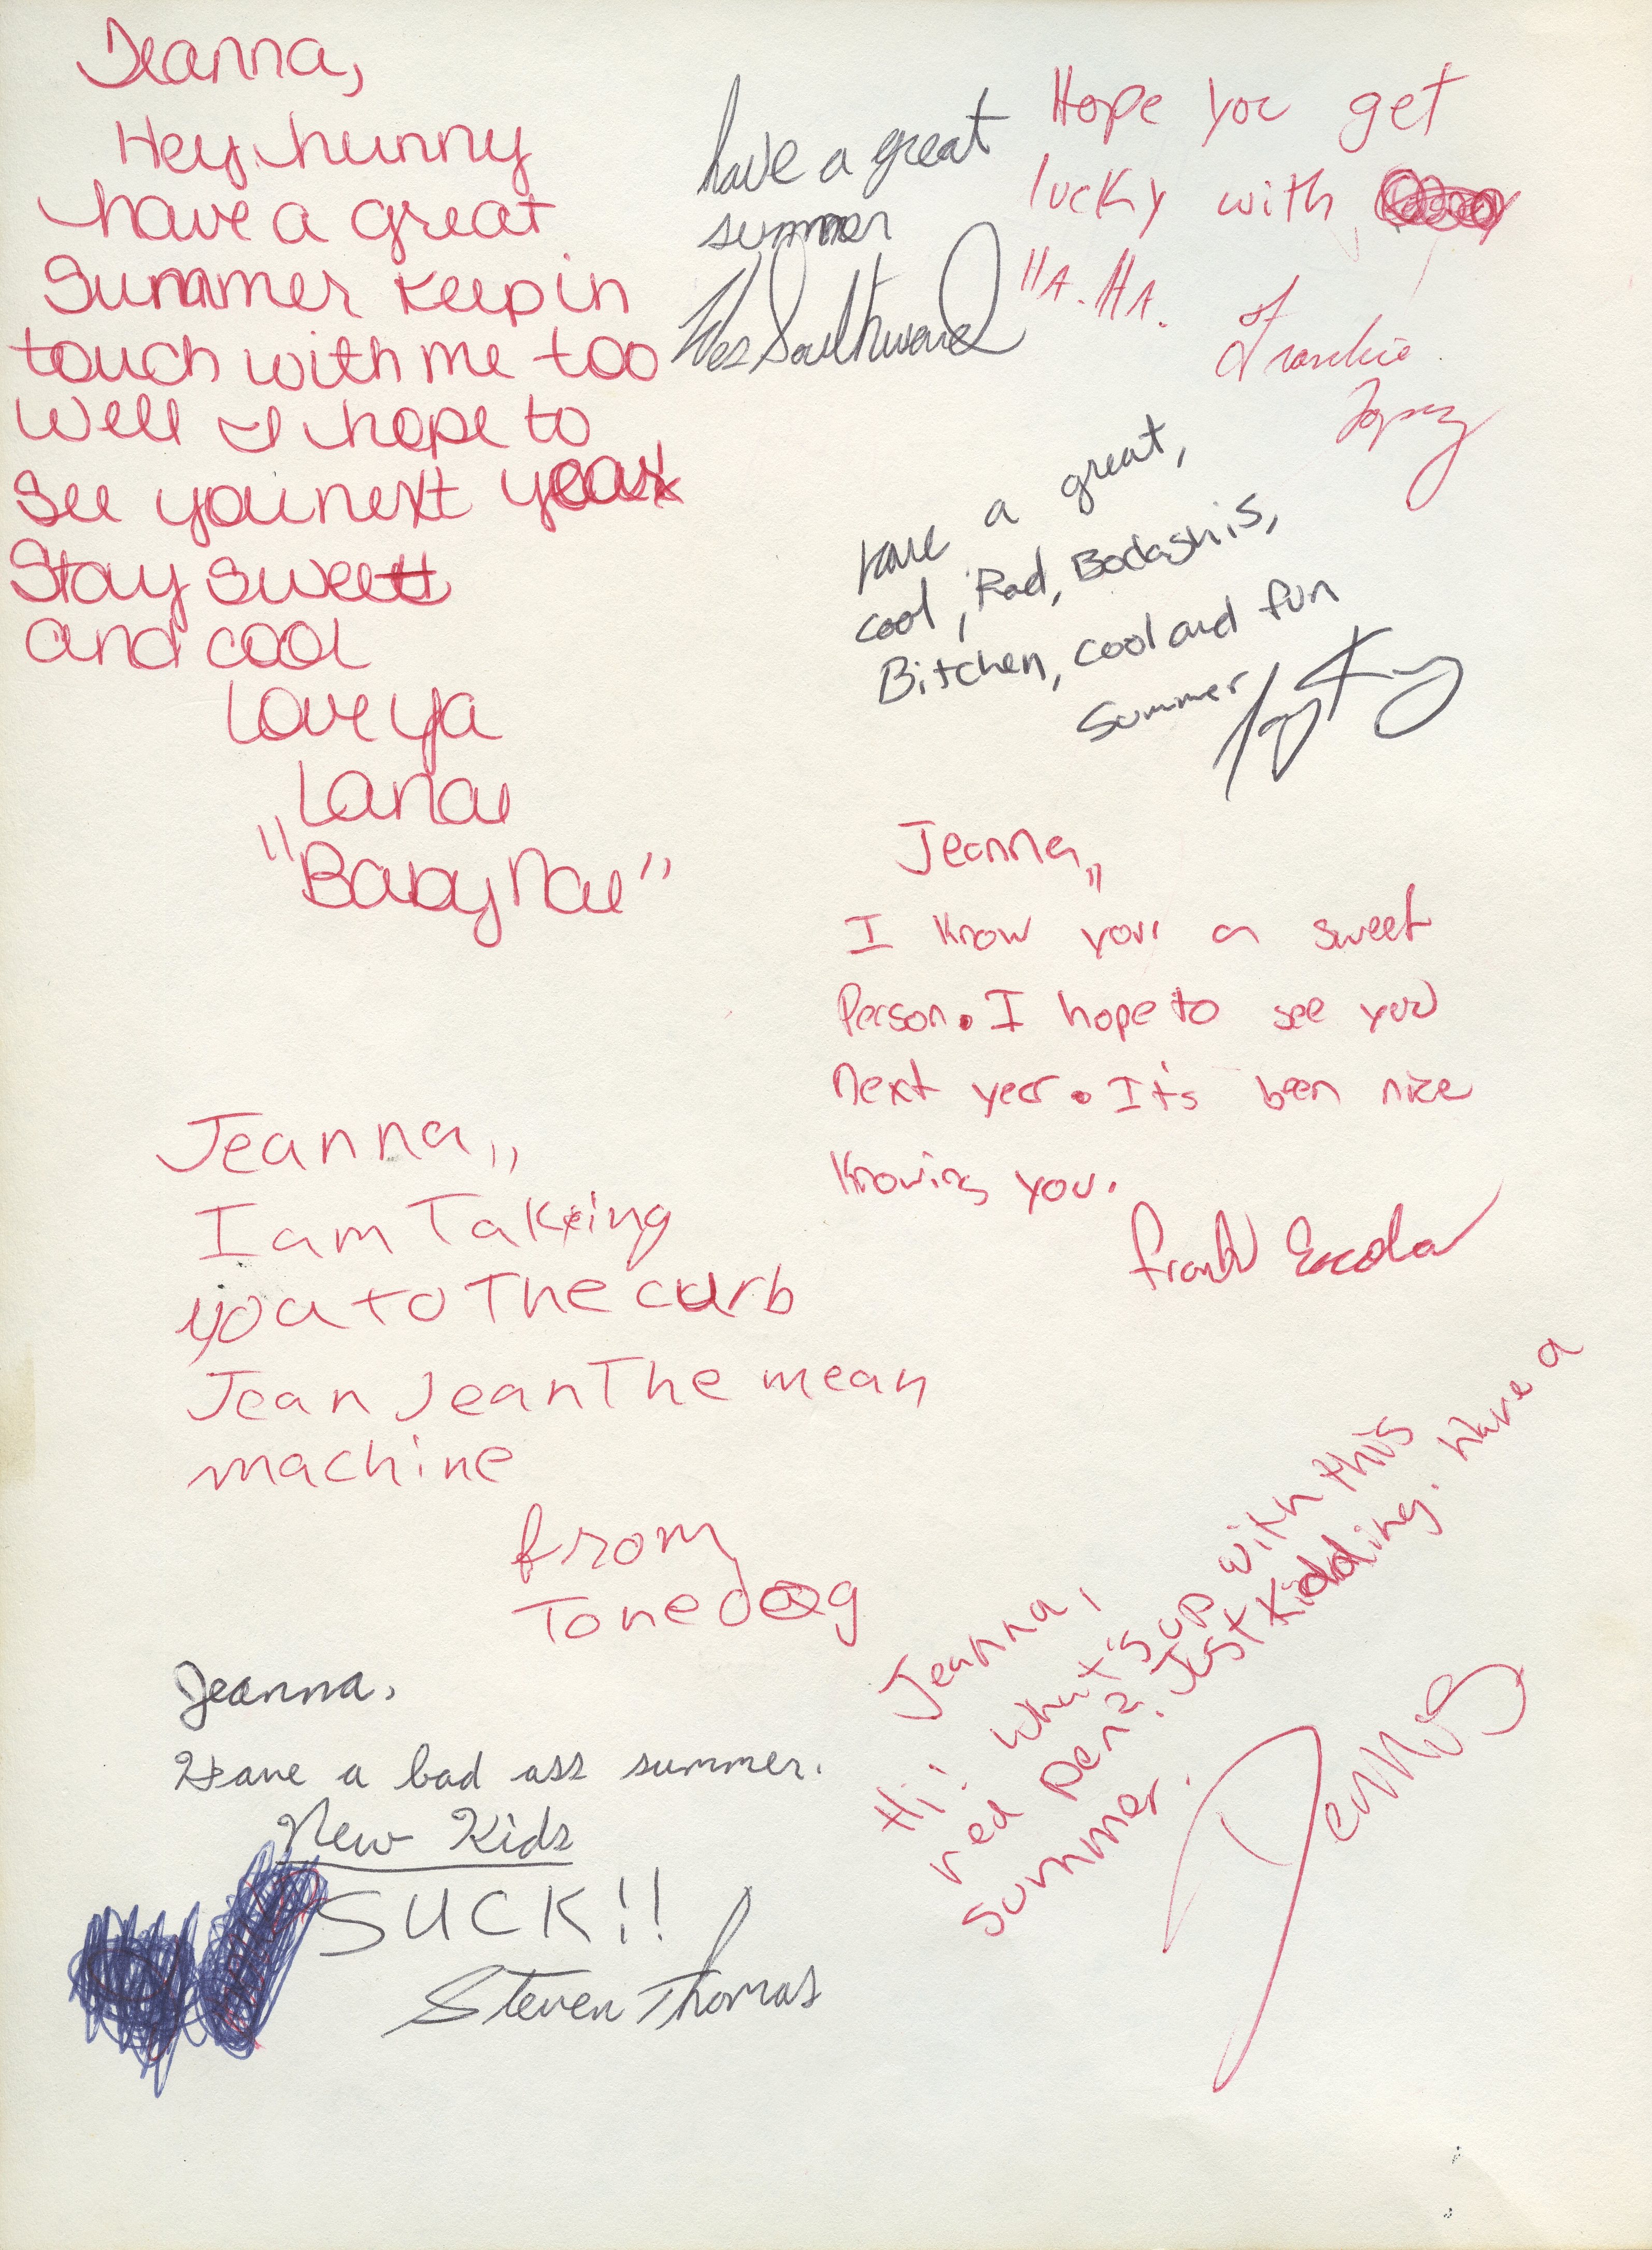 Jeanna,
Hey hunny
have a great
Summer keep in
touch with me too
Well I hope to
See you next year
Stay sweet
and cool
Love ya
Lanae
"Baby Nae"
have a great
summer
Wes Southward
Hope you get
lucky with
HA. HA.
Frankie
Have a great,
cool, Rad, Bodashis,
Bitchen, cool and fun
Summer
Jeanna,,
I know your a sweet
Person. I hope to see you
next year. It's been nice
Knowing you.
Frank
Jeanna,,
I am Takeing
you to The curb
Jean Jean The mean
machine
from
Tonedog
Jeanna,
Hi! What's up with this
red pen? Just Kidding. Have a
summer.
Dennis
Jeanna,
Have a bad ass summer.
New Kids
SUCK!!
Steven Thomas